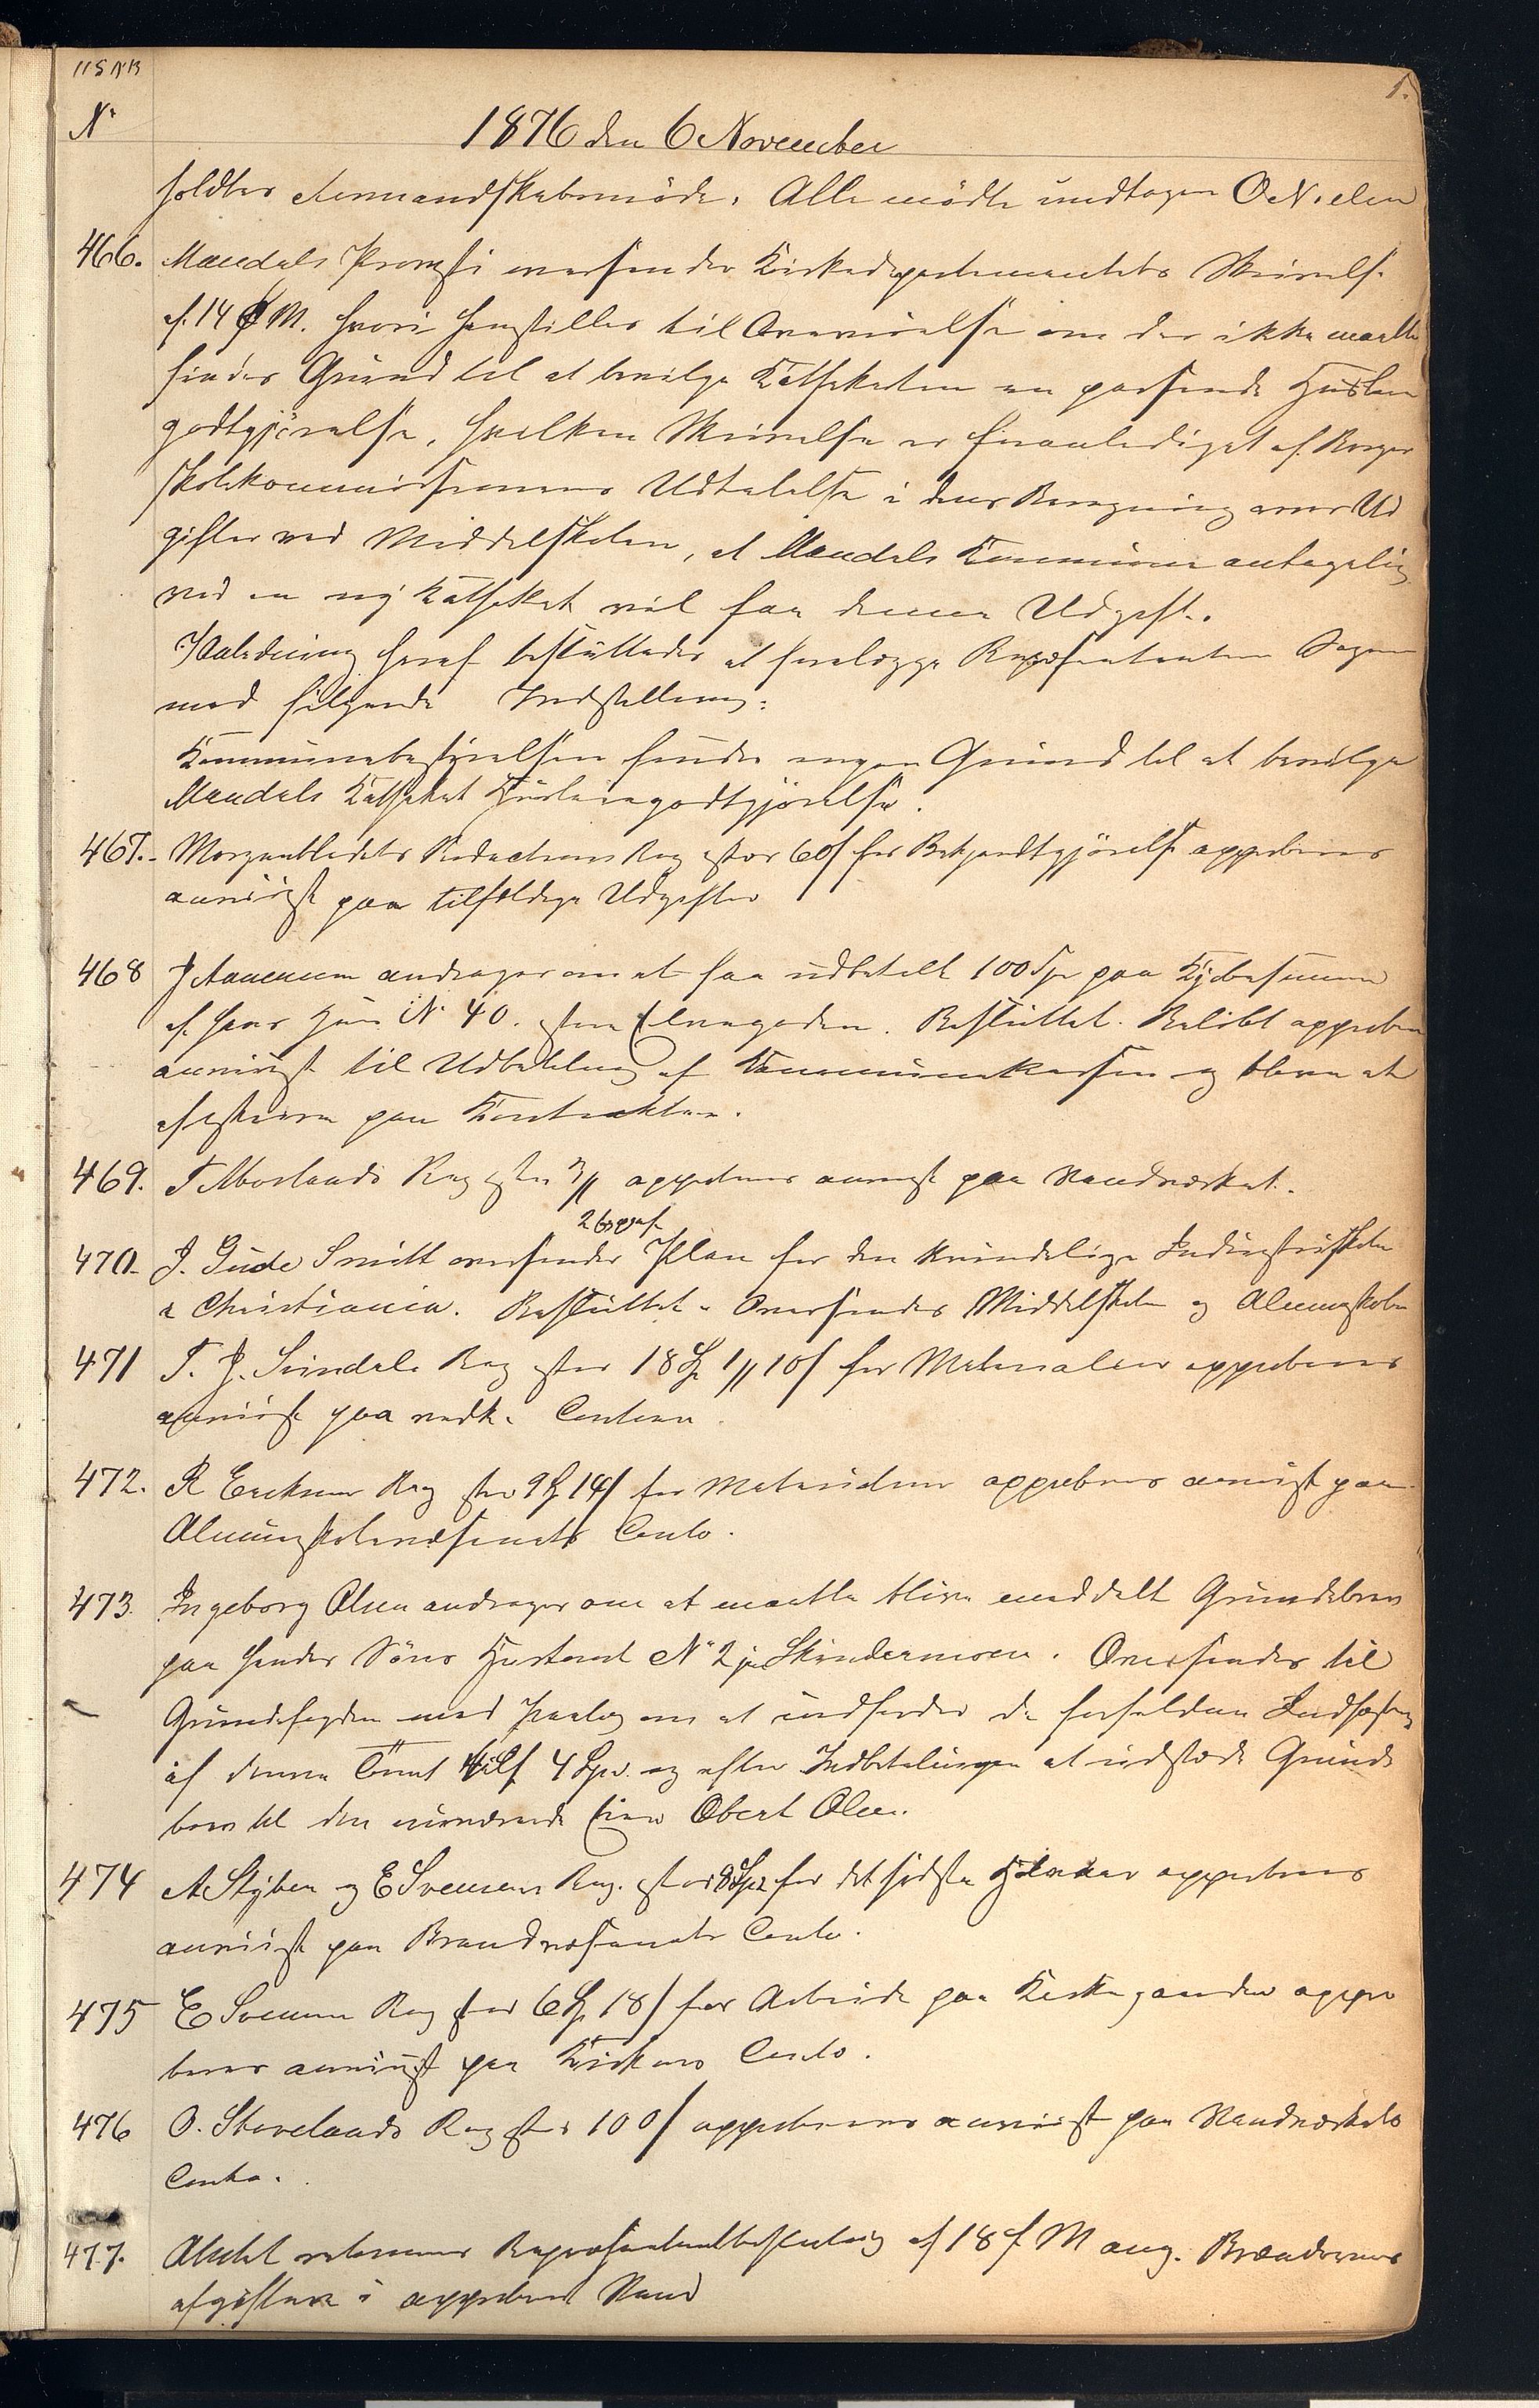 115 NB
1.
No
1876 den 6 November
holdtes Formandskabsmöde. Alle mödte undtagen O Nielsen
466. Mandals Provsti oversender Kirkedepartementets Skrivelse
af 14 f M. hvori henstilles til Overveielse om der ikke maatte
findes Grund til at bevilge Katheketen en passende Huslei
godtgjörelse, hvilken Skrivelse er foranlediget af Borger
skolekommissionens Udtalelse i dens Beregning over Ud
gifter ved Middelskolen, at Mandals Kommune antagelig
ved en ny Katheket vil faa denne Udgift.
I Anledning heraf besluttedes at forelægge Repræsentanterne Sagen
med fölgende Indstilling:
Kommunebestyrelsen finder ingen Grund til at bevilge
Mandals Kathekat Husleiegodtgjörelse.
467. Morgenbladets Redactions Reg stor 60 s for Bekjendtgjörelse approberes
anviist paa tilfældige Udgifter
468 J Aanensen andrager om at faa udbetalt 100 Spd paa Kjöbesummen
af hans Huus No 40. store Elvegaden. Besluttet. Belöbet approberes
anviist til Udbetaling af Kommunekassen og bliver at
afskrive paa Kontrakten.
469. T Morlands Reg stor approberes anvist paa Vandværket.
2 Expl af
470. J. Gude Smitt oversender Plan for den kvindelige Industriskole
i Christiania. Besluttet. Oversendes Middelskolen og Almueskolen
471 T. J. Svindals Reg stor 18 Sp 1 10 s for Materialier approberes
anviist paa vedk. Contoen.
472. R Ericksens Reg stor 9 Sp 14 s for Materialier approberes anvist paa
Almueskolevæsenets Conto.
473. Ingeborg Olsen andrager om at maatte blive meddelt Grundebrev
paa hendes Söns Hustomt No 2 paa Skindermoen. Oversendes til
Grundefogden med Paalæg om at indfordre de forfaldne Indfæstning
af denne Tomt 4 Spd. og efter Indbetalingen at udstede Grunde
brev til den nuværende Eier Obert Olsen.
474 A Styben og E Svensens Reg. stor 8 Sp for det sidste Halvaar approberes
anviist paa Brandvæsenets Conto.
475 E Svensens Reg stor 6 Sp 18 s for Arbeide paa Kirkegaarden appro
beres anviist paa Kirkens Conto.
476 O. Skovelands Reg stor 100 s approberes anvist paa Vandværkets
Conto.
477. Amtet returnerer Repræsentantbeslutning af 18 f M ang. Brændeviins
afgiften i approberet Stand